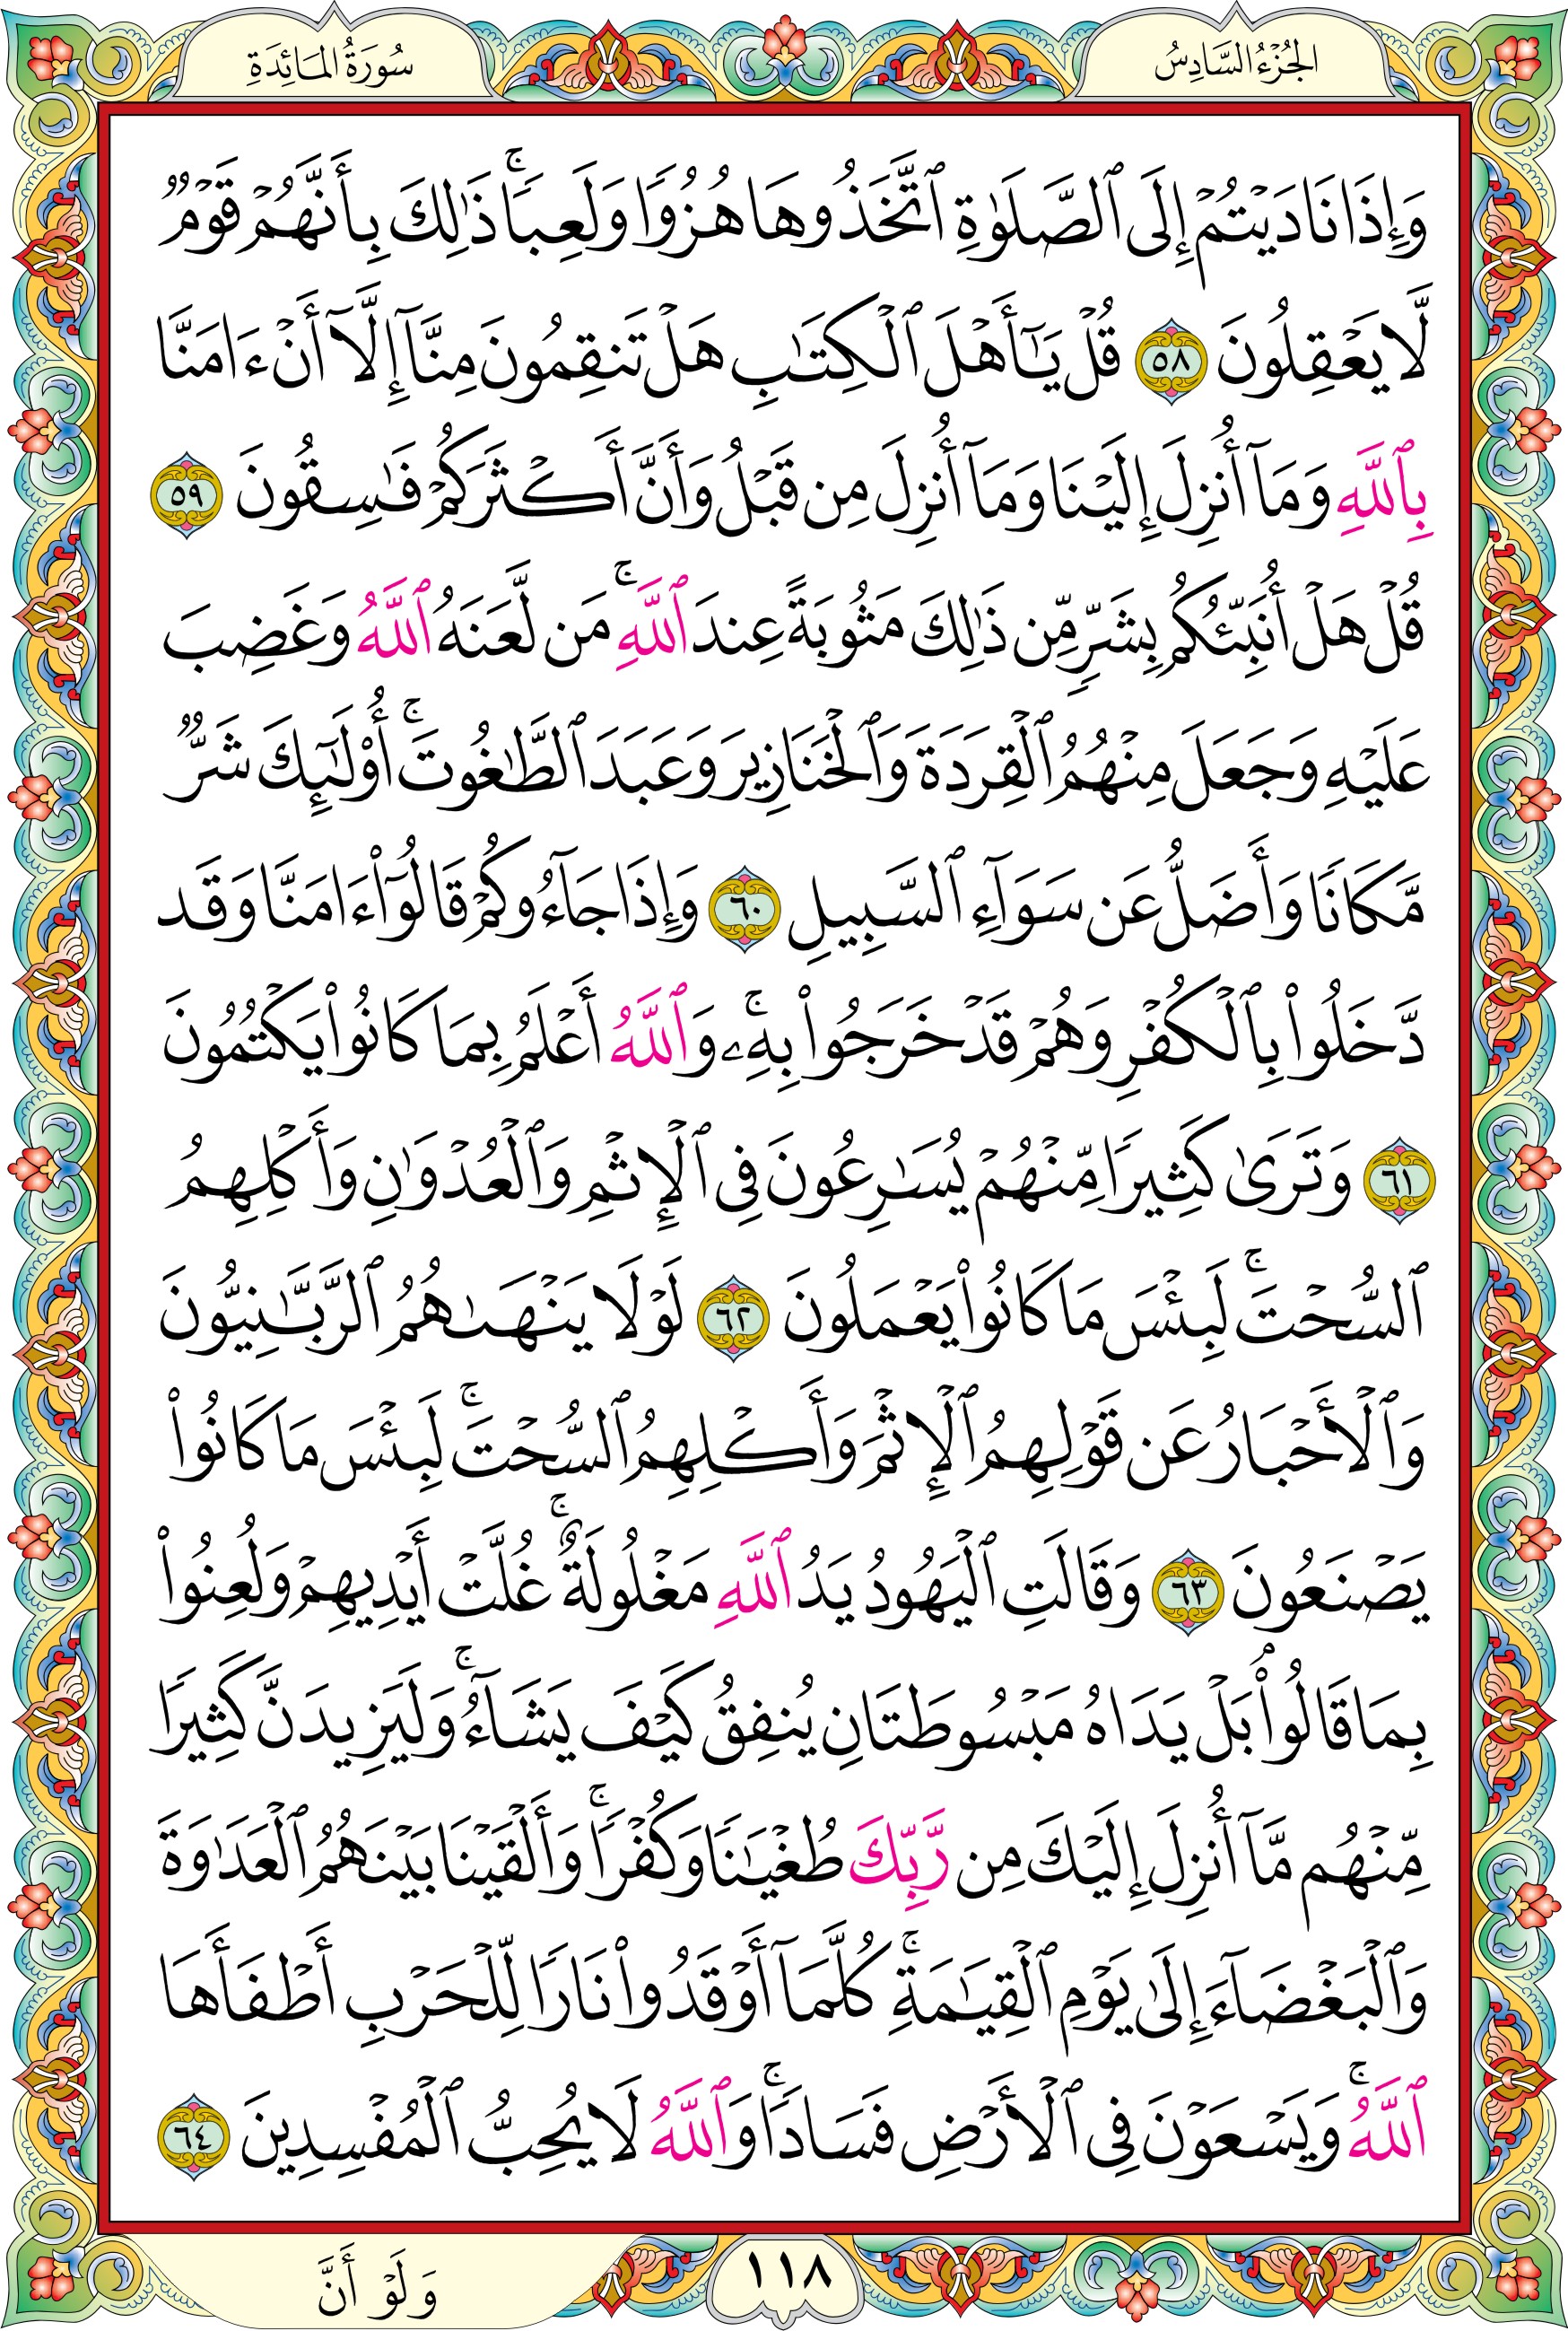 الجُزْءُ السَّادِسُ
سُورَةُ المَائِدَةِ
وَإِذَا نَادَيْتُمْ إِلَى ٱلصَّلَوٰةِ ٱتَّخَذُوهَا هُزُوًا وَلَعِبًا ۚ ذَٰلِكَ بِأَنَّهُمْ قَوْمٌ
لَّا يَعْقِلُونَ ٥٨ قُلْ يَـٰٓأَهْلَ ٱلْكِتَـٰبِ هَلْ تَنقِمُونَ مِنَّآ إِلَّآ أَنْ ءَامَنَّا
بِٱللَّهِ وَمَآ أُنزِلَ إِلَيْنَا وَمَآ أُنزِلَ مِن قَبْلُ وَأَنَّ أَكْثَرَكُمْ فَـٰسِقُونَ ٥٩
قُلْ هَلْ أُنَبِّئُكُم بِشَرٍّ مِّن ذَٰلِكَ مَثُوبَةً عِندَ ٱللَّهِ ۚ مَن لَّعَنَهُ ٱللَّهُ وَغَضِبَ
عَلَيْهِ وَجَعَلَ مِنْهُمُ ٱلْقِرَدَةَ وَٱلْخَنَازِيرَ وَعَبَدَ ٱلطَّـٰغُوتَ ۚ أُو۟لَـٰٓئِكَ شَرٌّ
مَّكَانًا وَأَضَلُّ عَن سَوَآءِ ٱلسَّبِيلِ ٦٠ وَإِذَا جَآءُوكُمْ قَالُوٓا۟ ءَامَنَّا وَقَد
دَّخَلُوا۟ بِٱلْكُفْرِ وَهُمْ قَدْ خَرَجُوا۟ بِهِۦ ۚ وَٱللَّهُ أَعْلَمُ بِمَا كَانُوا۟ يَكْتُمُونَ
٦١ وَتَرَىٰ كَثِيرًا مِّنْهُمْ يُسَـٰرِعُونَ فِى ٱلْإِثْمِ وَٱلْعُدْوَٰنِ وَأَكْلِهِمُ
ٱلسُّحْتَ ۚ لَبِئْسَ مَا كَانُوا۟ يَعْمَلُونَ ٦٢ لَوْلَا يَنْهَىٰهُمُ ٱلرَّبَّـٰنِيُّونَ
وَٱلْأَحْبَارُ عَن قَوْلِهِمُ ٱلْإِثْمَ وَأَكْلِهِمُ ٱلسُّحْتَ ۚ لَبِئْسَ مَا كَانُوا۟
يَصْنَعُونَ ٦٣ وَقَالَتِ ٱلْيَهُودُ يَدُ ٱللَّهِ مَغْلُولَةٌ ۚ غُلَّتْ أَيْدِيهِمْ وَلُعِنُوا۟
بِمَا قَالُوا۟ ۘ بَلْ يَدَاهُ مَبْسُوطَتَانِ يُنفِقُ كَيْفَ يَشَآءُ ۚ وَلَيَزِيدَنَّ كَثِيرًا
مِّنْهُم مَّآ أُنزِلَ إِلَيْكَ مِن رَّبِّكَ طُغْيَـٰنًا وَكُفْرًا ۚ وَأَلْقَيْنَا بَيْنَهُمُ ٱلْعَدَٰوَةَ
وَٱلْبَغْضَآءَ إِلَىٰ يَوْمِ ٱلْقِيَـٰمَةِ ۚ كُلَّمَآ أَوْقَدُوا۟ نَارًا لِّلْحَرْبِ أَطْفَأَهَا
ٱللَّهُ ۚ وَيَسْعَوْنَ فِى ٱلْأَرْضِ فَسَادًا ۚ وَٱللَّهُ لَا يُحِبُّ ٱلْمُفْسِدِينَ ٦٤
١١٨
وَلَوْ أَنَّ